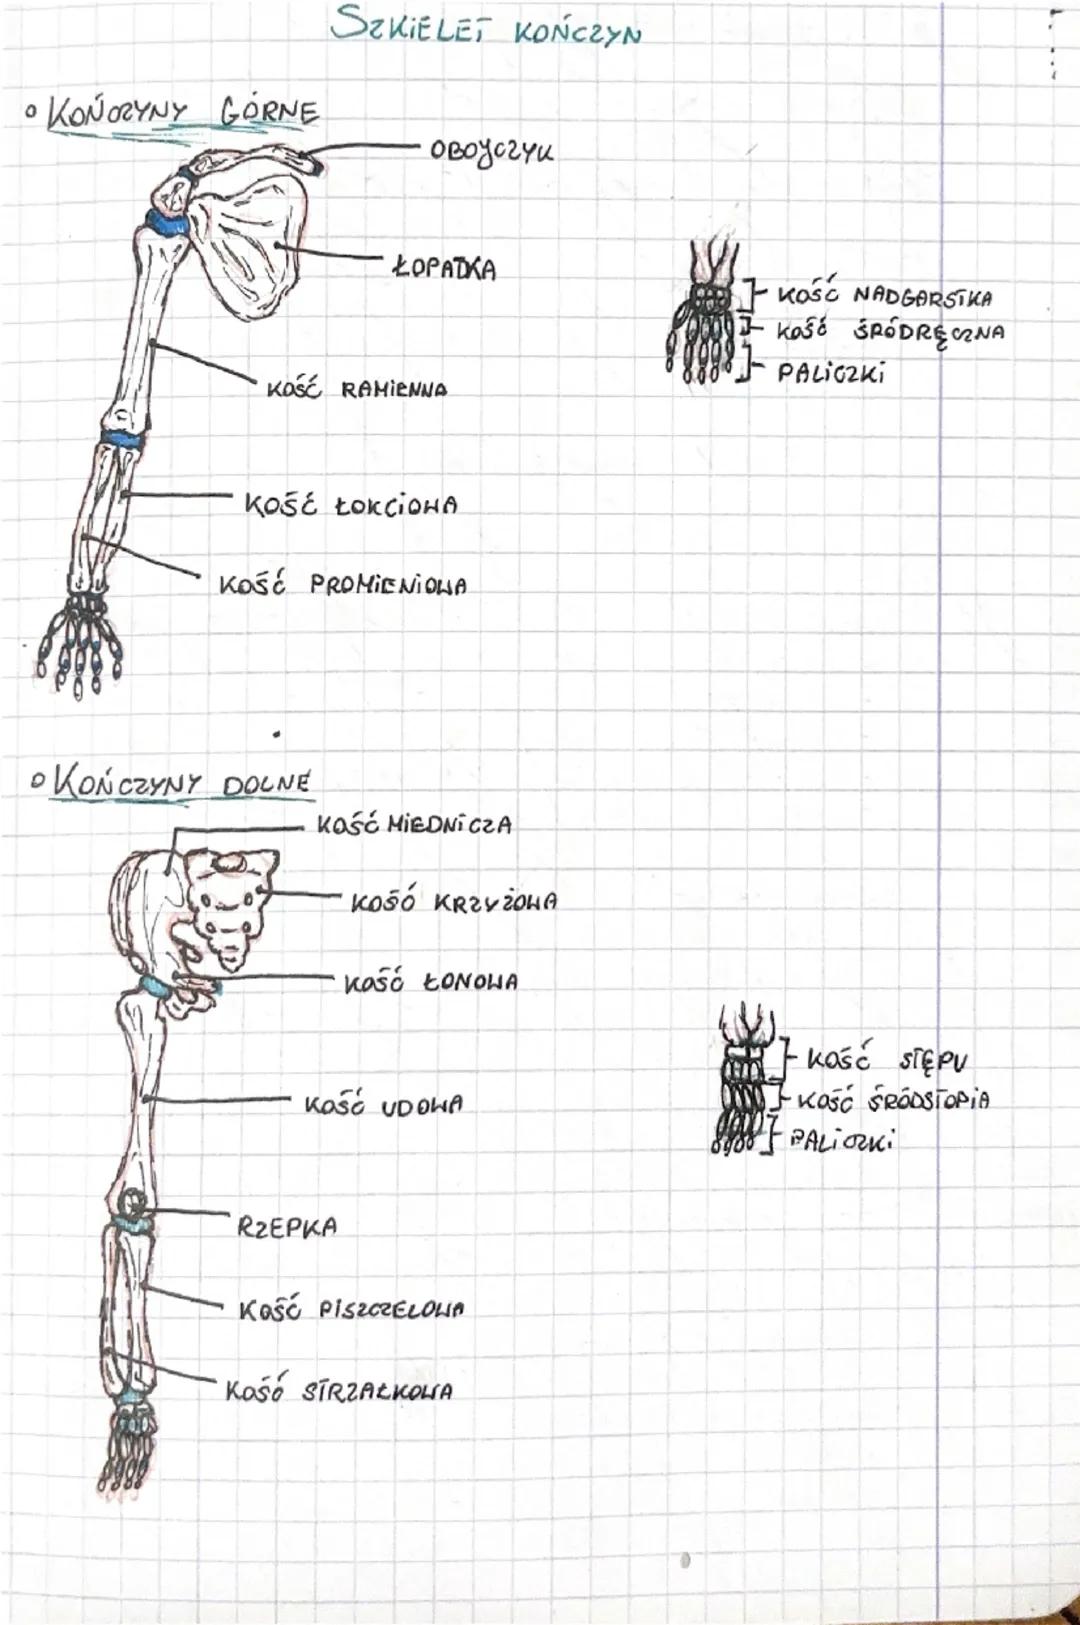 SZKIELET KOŃCZYN
KOŃCZYNY GÓRNE
OBOJCZYK
ŁOPATKA
KOŚĆ NADGARSTKA
KOŚĆ ŚRÓDRĘCZNA
PALICZKI
KOŚĆ RAMIENNA
KOŚĆ ŁOKCIOWA
KOŚĆ PROMIENIOWA
KOŃCZYNY DOLNE
KOŚĆ MIEDNICZA
KOŚĆ KRZYŻOWA
KOŚĆ ŁONOWA
KOŚĆ STĘPU
KOŚĆ ŚRÓDSTOPIA
PALICZKI
KOŚĆ UDOWA
RZEPKA
KOŚĆ PISZCZELOWA
KOŚĆ STRZAŁKOWA